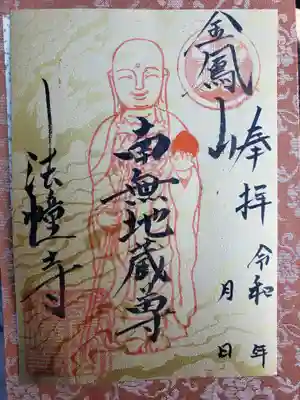 金鳳山
奉拝
令和 年
月 日
南無地蔵尊
法幢寺